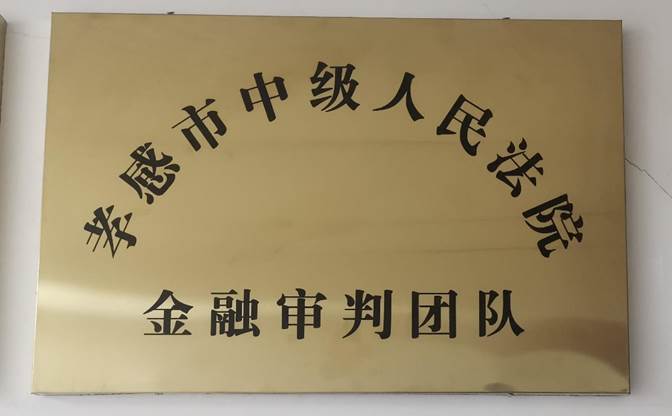 孝感市中级人民法院
金融审判团队